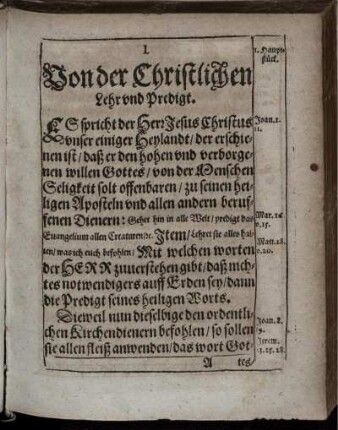 I.
Von der Christlichen
Lehr vnd Predigt.
ES spricht der Herr Jesus Christus
vnser einiger Heylandt/ der erschie-
nen ist/ daß er den hohen vnd verborge-
nen willen Gottes/ von der Menschen
Seligkeit solt offenbaren/ zu seinen hei-
ligen Aposteln vnd allen andern beruf-
fenen Dienern: Gehet hin in alle Welt/ prediget das
Euangelium allen Creaturen/ ꝛc. Item/ Lehret sie alles hal-
ten/ was ich euch befohlen/ Mit welchen worten
der HERR zuuerstehen gibt/ daß nich-
tes notwendigers auff Erden sey/ dann
die Predigt seines heiligen Worts.
Dieweil nun dieselbige den ordentli-
chen Kirchendienern befohlen/ so sollen
sie allen fleiß anwenden/ das wort Got-
A
tes
1. Haupt-
stück.
Joan. 1.
Mar. 16.
v. 15.
Matt. 28.
v. 20.
Joan. 8.
Jerem.